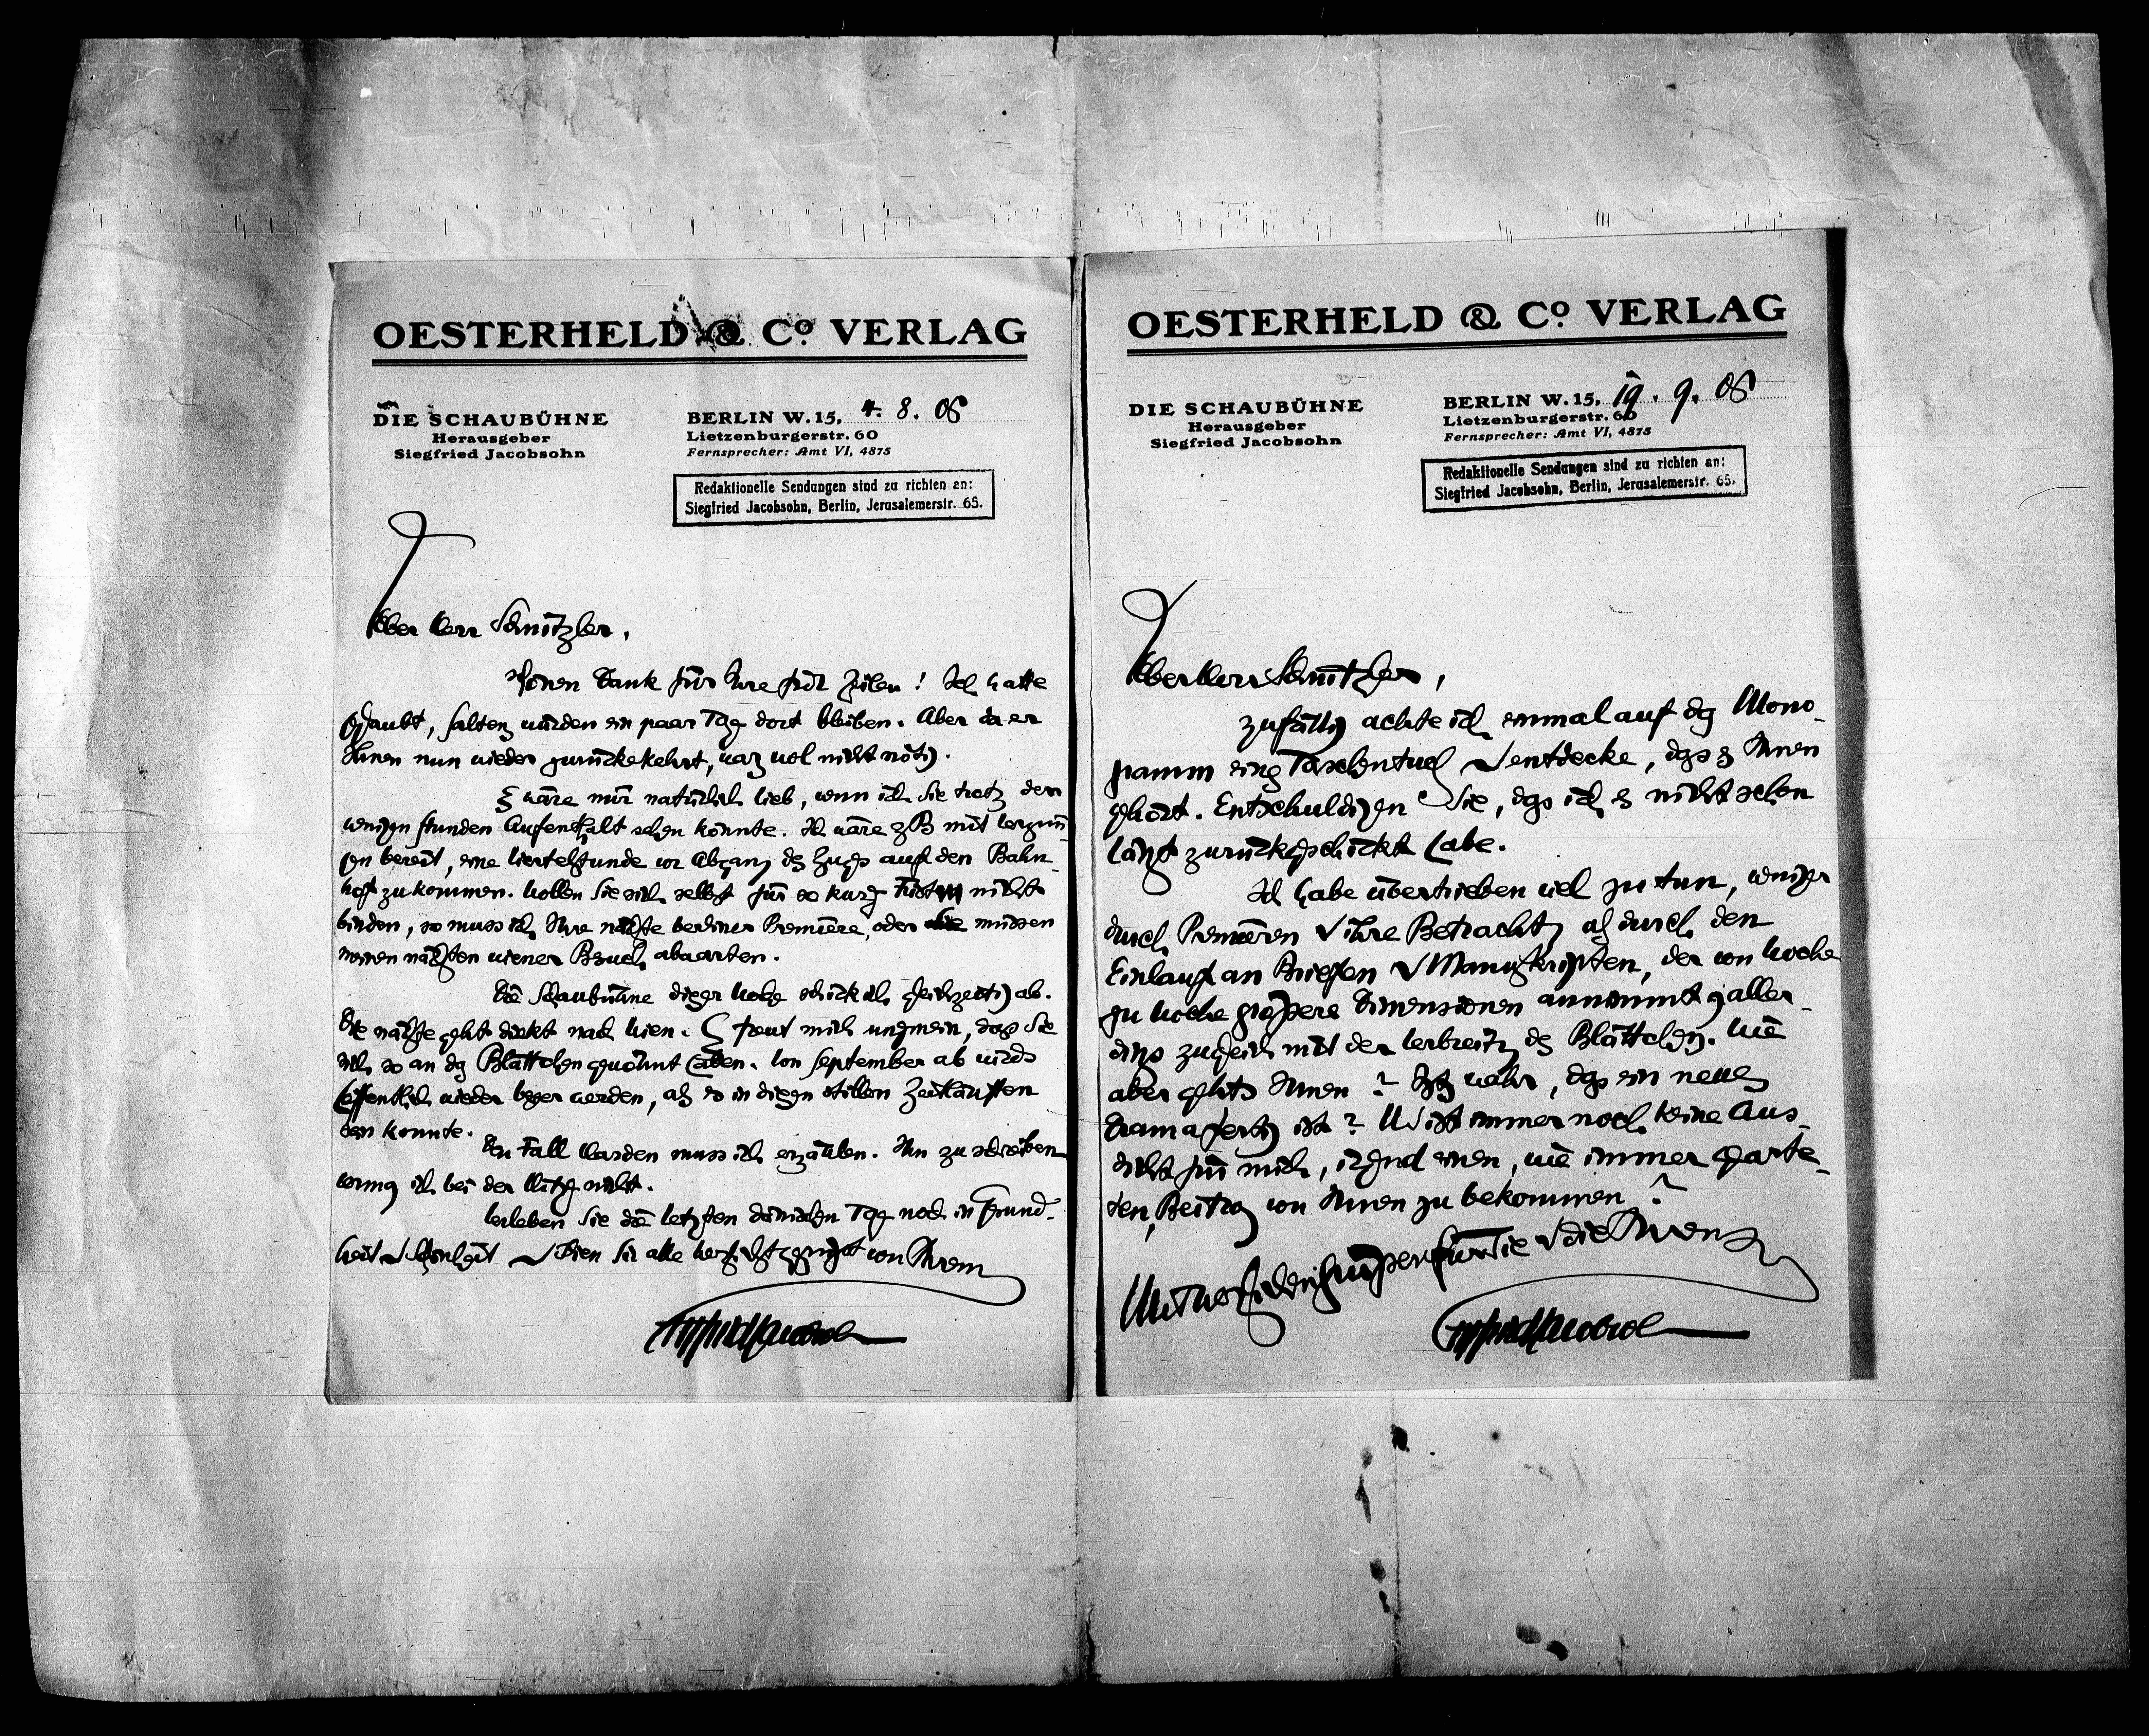 OESTERHELD & Cº VERLAG
DIE SCHAUBÜHNE
Herausgeber
Siegfried Jacobsohn
BERLIN W. 15, 4. 8. 06
Lietzenburgerstr. 60
Fernsprecher: Amt VI, 4875
Redaktionelle Sendungen sind zu richten an:
Siegfried Jacobsohn, Berlin, Jerusalemerstr. 65.
Lieber Herr Schnitzler,
schönen Dank für Ihre Zeilen! Ich hatte
geglaubt, Saltens würden ein paar Tage dort bleiben. Aber da er
Ihnen nun wieder zurückekehrt, wars wol nicht nötig.
Es wäre mir natürlich lieb, wenn ich Sie trotz dem
wenigen Stunden Aufenthalt sehen könnte. Ich wäre zB mit Vergnü
gen bereit, eine Viertelstunde vor Abgang des Zuges auf den Bahn-
hof zu kommen. Wollen Sie sich selbst für so kurze Fristen nicht
binden, so muss ich Ihre nächste berliner Premiere, oder Sie müssen
meinen nächsten wiener Besuch abwarten.
Die Schaubühne dieser Woche schick ich gleichzeitig ab.
Die nächste geht direkt nach Wien. Es freut mich ungemein, dass Sie
sich so an das Blättchen gewöhnt haben. Von September ab wirds
hoffentlich wieder besser werden, als es in diesen stillen Zeitläuften
sein konnte.
Den Fall Harden muss ich erzählen. Ihn zu schreiben
vermag ich bei der Hitze nicht.
Verleben Sie die letzten dänischen Tage noch in Gesund-
heit & Schönheit & seien Sie alle herzlichst gegrüsst von Ihrem
Siegfried Jacobsohn
OESTERHELD & Cº VERLAG
DIE SCHAUBÜHNE
Herausgeber
Siegfried Jacobsohn
BERLIN W. 15, 19. 9. 06
Lietzenburgerstr. 60
Fernsprecher: Amt VI, 4875
Redaktionelle Sendungen sind zu richten an:
Siegfried Jacobsohn, Berlin, Jerusalemerstr. 65.
Lieber Herr Schnitzler,
zufällig achte ich einmal auf das Mono-
gramm eines Taschentuchs & entdecke, dass es Ihnen
gehört. Entschuldigen Sie, dass ich es nicht schon
längst zurückgeschickt habe.
Ich habe übertrieben viel zu tun, weniger
durch Premièren & ihre Betrachtung als durch den
Einlauf an Briefen & Manuskripten, der von Woche
zu Woche grössere Dimensionen annimmt, aller-
dings zugleich mit der Verbreitung des Blättchens. Wie
aber gehts Ihnen? Ists wahr, dass ein neues
Drama fertig ist? Und ist immer noch keine Aus-
sicht für mich, irgend einen, wie immer gearte-
ten, Beitrag von Ihnen zu bekommen?
Mit herzlichen Grüssen für Sie & die Ihren
Siegfried Jacobsohn